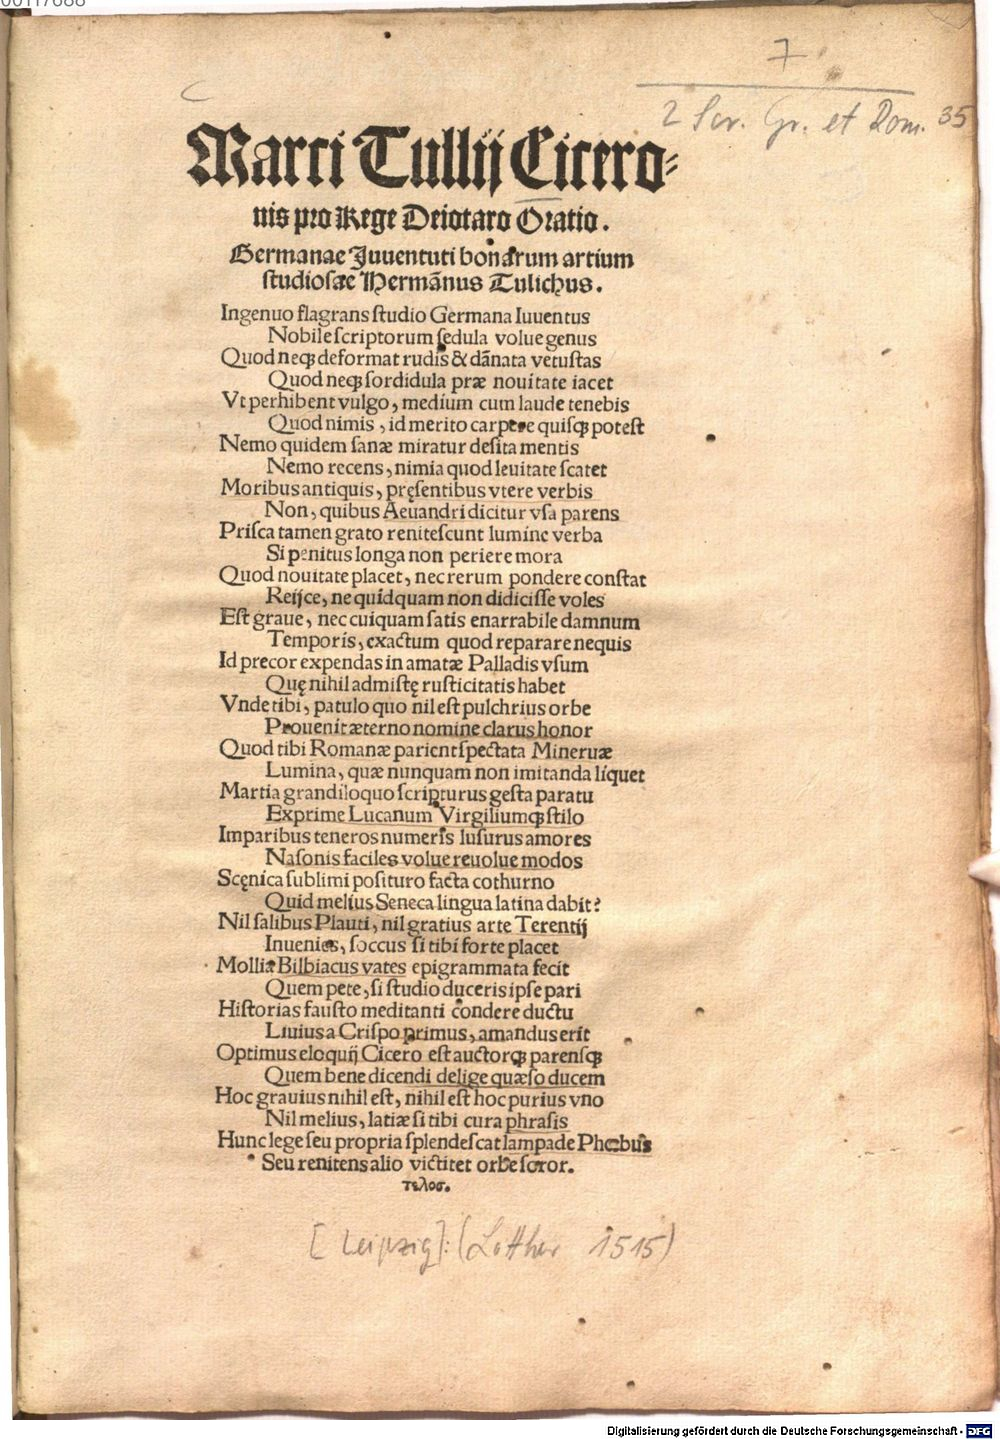 7
2 Scr. Gr. et Rom. 35
Marci Tullij Cicero⸗
nis pro Rege Deiotaro Oratio.
Germanae Juuentuti bonarum artium
studiosae Hermãnus Tulichus.
Ingenuo flagrans studio Germana Iuuentus
Nobile scriptorum sedula volue genus
Quod neqꝫ deformat rudis & dãnata vetustas
Quod neqꝫ sordidula præ nouitate iacet
Vt perhibent vulgo, medium cum laude tenebis
Quod nimis, id merito carpere quisqꝫ potest
Nemo quidem sanæ miratur desita mentis
Nemo recens, nimia quod leuitate scatet
Moribus antiquis, pręsentibus vtere verbis
Non, quibus Aeuandri dicitur vsa parens
Prisca tamen grato renitescunt lumine verba
Si penitus longa non periere mora
Quod nouitate placet, nec rerum pondere constat
Reijce, ne quidquam non didicisse voles
Est graue, nec cuiquam satis enarrabile damnum
Temporis, exactum quod reparare nequis
Id precor expendas in amatæ Palladis vsum
Quę nihil admistę rusticitatis habet
Vnde tibi, patulo quo nil est pulchrius orbe
Prouenit æterno nomine clarus honor
Quod tibi Romanæ parient spectata Mineruæ
Lumina, quæ nunquam non imitanda liquet
Martia grandiloquo scripturus gesta paratu
Exprime Lucanum Virgiliumqꝫ stilo
Imparibus teneros numeris lusurus amores
Nasonis faciles volue reuolue modos
Scęnica sublimi posituro facta cothurno
Quid melius Seneca lingua latina dabit?
Nil salibus Plauti, nil gratius arte Terentij
Inuenies, soccus si tibi forte placet
Mollia Bilbiacus vates epigrammata fecit
Quem pete, si studio duceris ipse pari
Historias fausto meditanti condere ductu
Liuius a Crispo primus, amandus erit
Optimus eloquij Cicero est auctorqꝫ parensqꝫ
Quem bene dicendi delige quæso ducem
Hoc grauius nihil est, nihil est hoc purius vno
Nil melius, latiæ si tibi cura phrasis
Hunc lege seu propria splendescat lampade Phœbus
Seu renitens alio victitet orbe soror.
τελοσ.
[Leipzig]: (Lotther 1515)
Digitalisierung gefördert durch die Deutsche Forschungsgemeinschaft - DFG